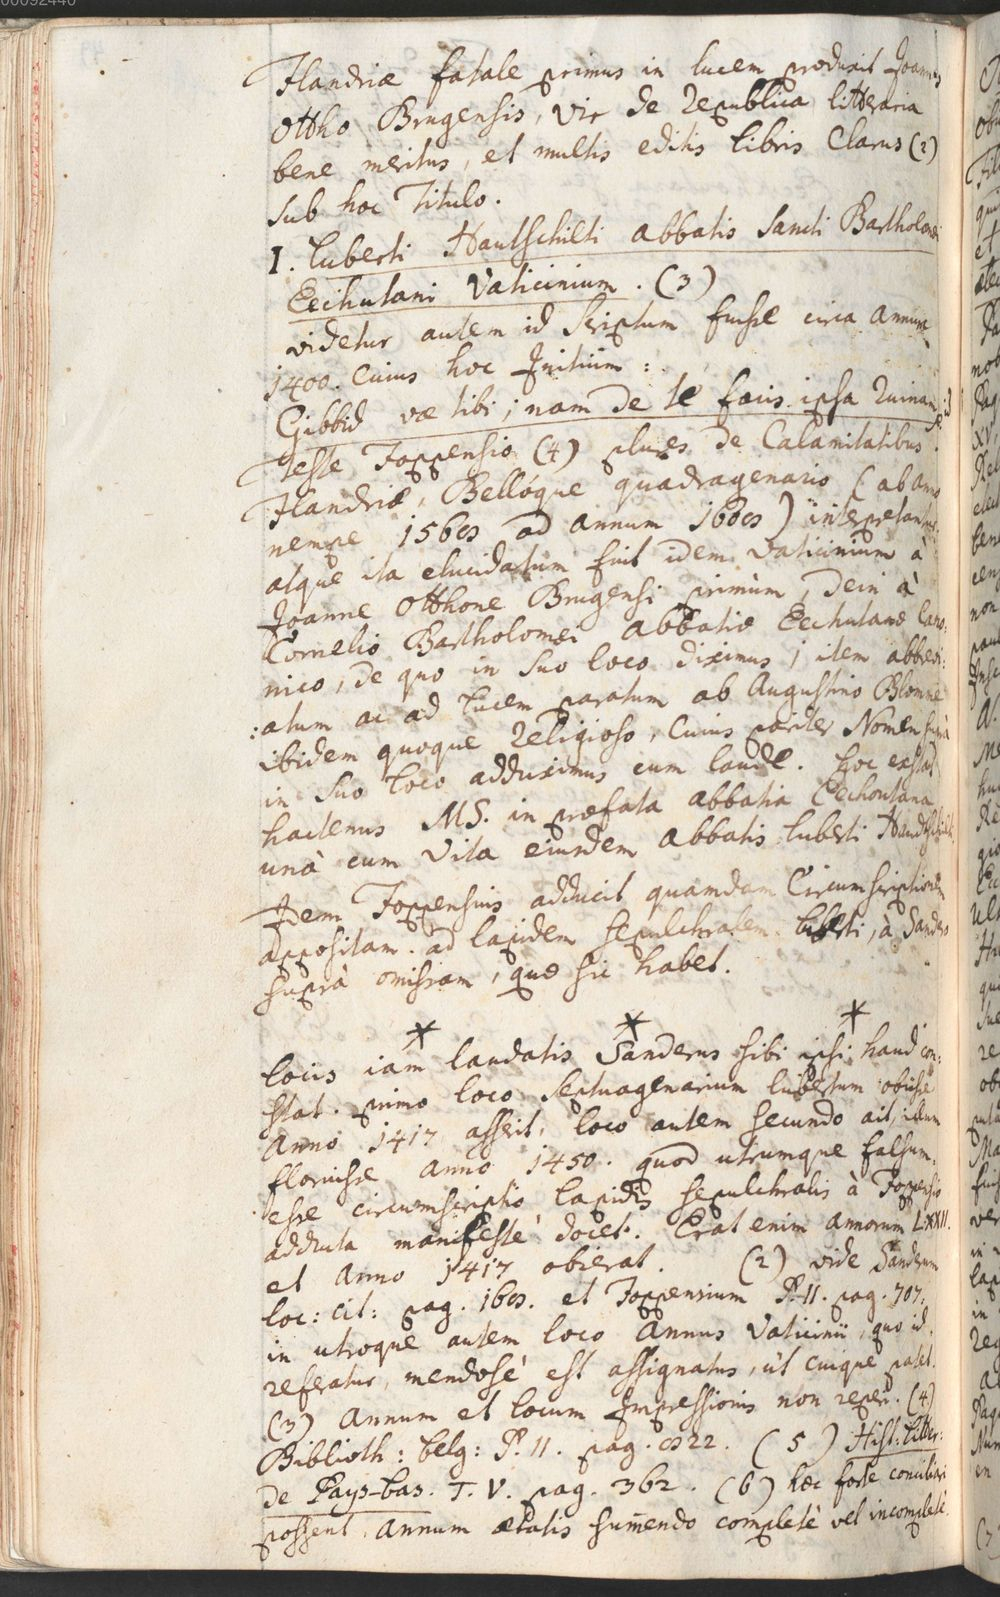 00092440
Flandriæ fatale primus in lucem produxit Joannes
Ottho Brugensis, vir de republica litteraria
bene meritus, et multis editis libris clarus (2)
sub hoc Titulo.
I. Luberti Hautschilti abbatis Sancti Bartholomæi
Eechutani Vaticinium. (3)
videtur autem id scriptum fuisse circa annum
1400. Cuius hoc Initium:
Gibbid væ tibi; nam de te facis ipsa ruinam.
teste Foppensio (4) plures de Calamitatibus
Flandriæ, Bellóque quadragenario (ab anno
nempe 1568 ad annum 1608) interpretantur.
atque ita elucidatum fuit idem vaticinium à
Joanne Otthone Brugensi primùm, dein à
Cornelio Bartholomei abbatiæ Eechutanæ Cano:
nico, de quo in suo loco diximus; item abbrevi:
:atum ac ad lucem paratum ab Augustino Blomme
ibidem quoque religioso, Cuius pariter Nomen suprà
in suo loco adduximus cum laude. hoc exstat
hactenus MS. in præfata abbatia Eechoutana
unà cum Vita eiusdem abbatis Luberti
Item Foppensius adducit quamdam Circumscriptionem
appositam ad lapidem sepulchralem Luberti, à Sandero
suprà omissam, quæ sic habet.
* * *
locis iam laudatis Sanderus sibi ipsi haud con:
stat. primo loco septuagenarium lubertum obiisse
anno 1417 asserit, loco autem secundo ait, illum
floruisse anno 1450. quod utrumque falsum
esse circumscriptio lapidis sepulchralis à Foppensio
adducta manifestè docet. Erat enim annorum LXXII.
et anno 1417 obierat. (2) vide Sanderum
loc: cit: pag. 168. et Foppensium P. II. pag. 707.
in utroque autem loco annus Vaticinii, quo id
referatur, mendosè est assignatus, ùt cuique patet.
(3) annum et locum Impressionis non reperi. (4)
Biblioth: belg: P. II. pag. 822. (5) Hist: litter:
de Pays-bas. T. V. pag. 362. (6) hæc forte conciliari
possent annum ætatis sumendo completè vel incompletè